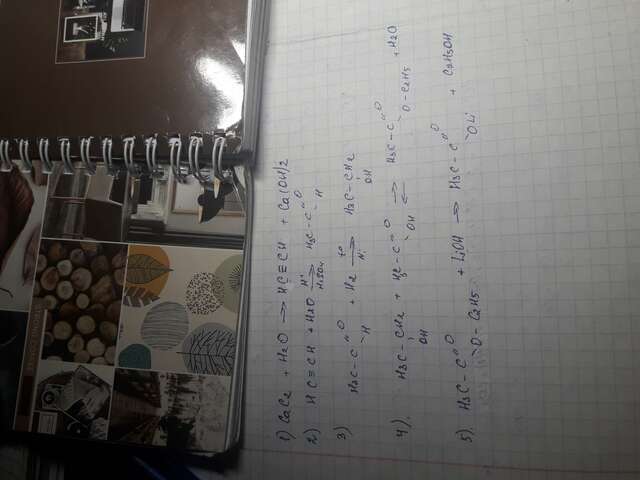 1) CaC2 + H2O → HC≡CH + Ca(OH)2
2) HC≡CH + H2O H+ → H2SO4 H3C-C=O H
3) H3C-C=O H + H2 t° → Ni H3C-CH2 OH
4). H3C-CH2 OH + H3C-C=O OH ⇄ H3C-C=O O-C2H5 + H2O
5). H3C-C=O O-C2H5 + LiOH → H3C-C=O OLi + C2H5OH